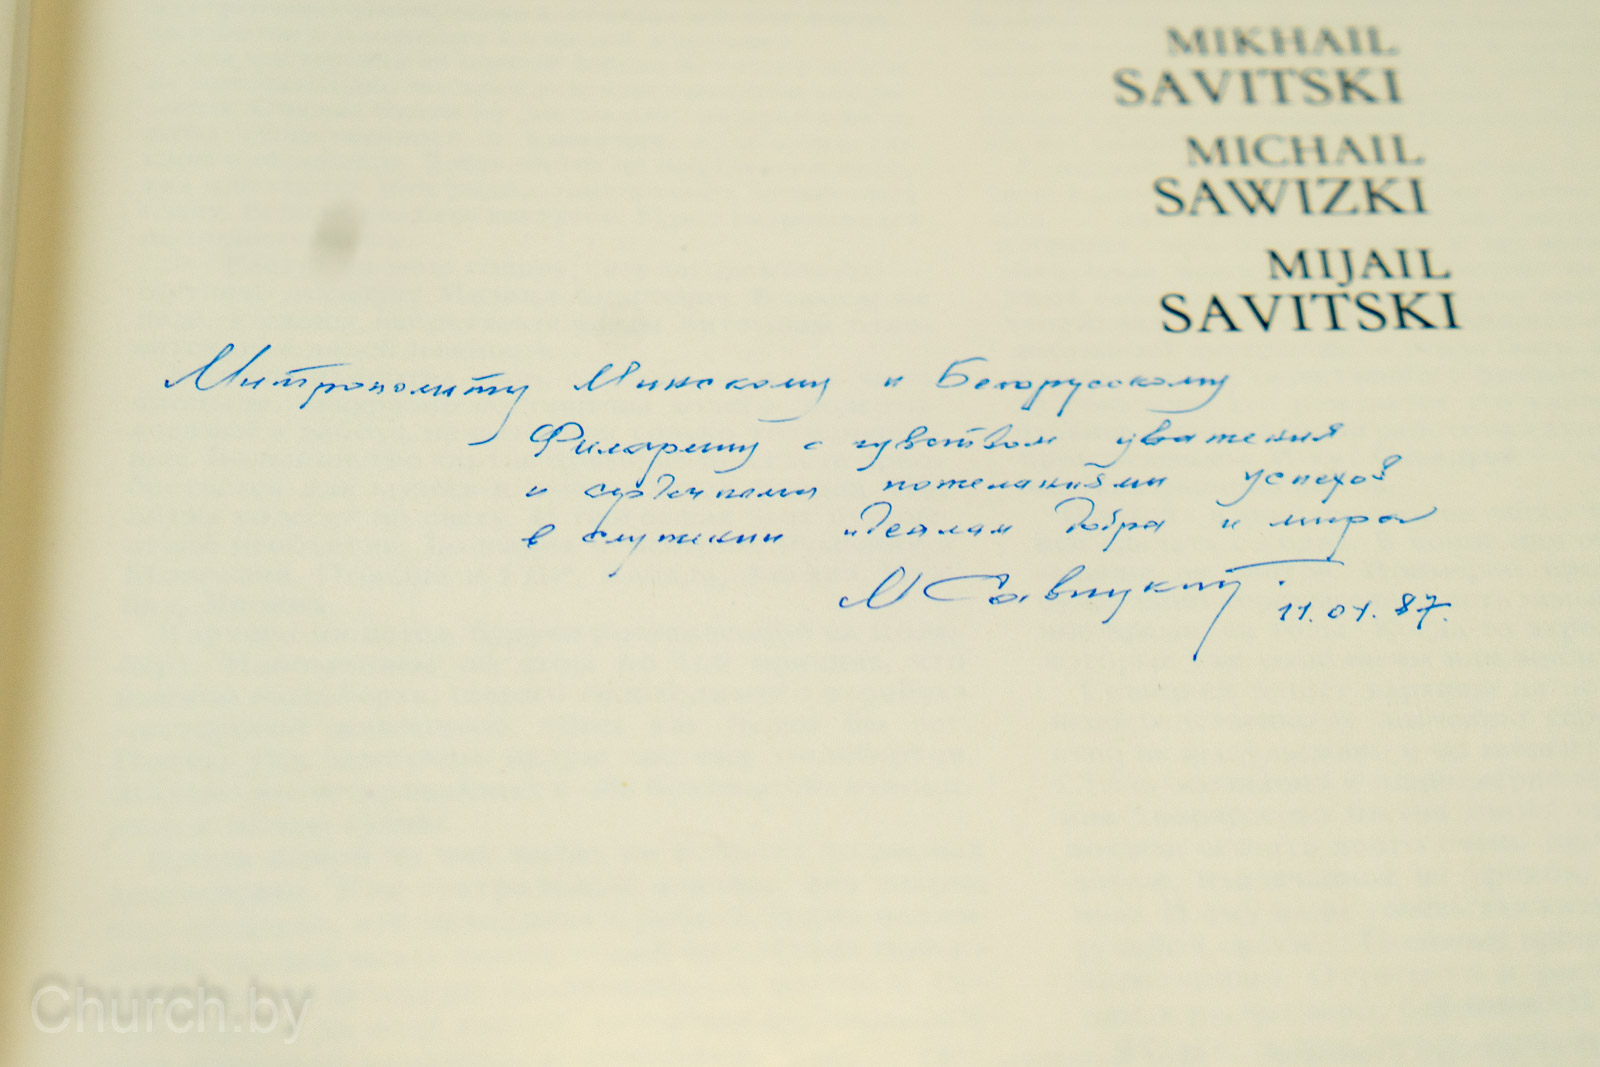 MIKHAIL
SAVITSKI
MICHAIL
SAWIZKI
MIJAIL
SAVITSKI
Митрополиту Минскому и Белорусскому
Филарету с чувством уважения
и сердечными пожеланиями успехов
в служении идеалам добра и мира
М Савицкий.
11.01.87.
Church.by